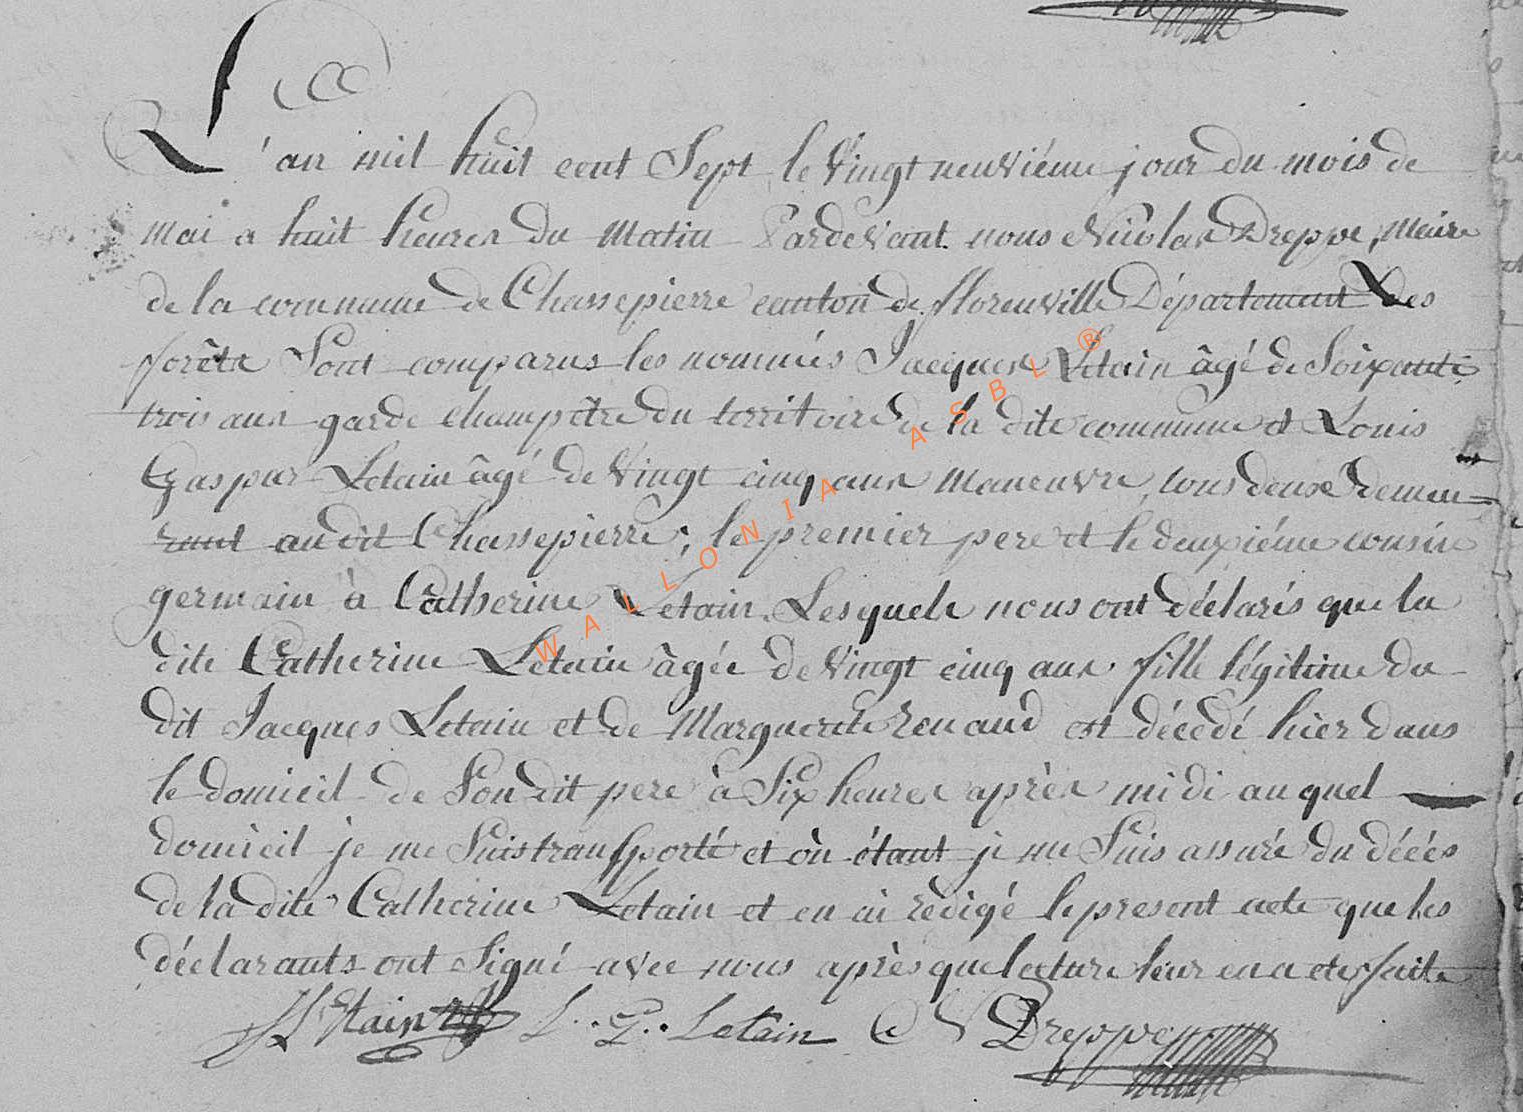 L'an mil huit cent Sept le Vingt neuviéme jour du mois de
mai a huit heures du matin Pardevant nous Nicolas Dreppe, maire
de la commune de Chassepierre canton de florenville Département des
forêts Sont comparus les nommés Jacques Letain âgé de Soixante
trois ans garde champêtre du territoire de la dite commune et Louis
Gaspar Letain âgé de Vingt cinq ans maneuvre, tous deux demeu-
rant audit Chassepierre; le premier pere et le deuxiéme cousin
germain à Catherine Letain. Lesquels nous ont déclarés que la
dite Catherine Letain âgée de Vingt cinq ans fille légitime du
dit Jacques Letain et de Marguerite renaud est décédé hier dans
le domicil de Son dit pere à Six heures après midi au quel
domicil je me Suis transporté et où étant je me Suis assuré du décés
de la dite Catherine Letain et en ai redigé le present acte que les
déclarants ont Signé avec nous après que lecture leur en a eté faite
J Letain L. G. Letain N Dreppe
WALLONIA ASBL ®